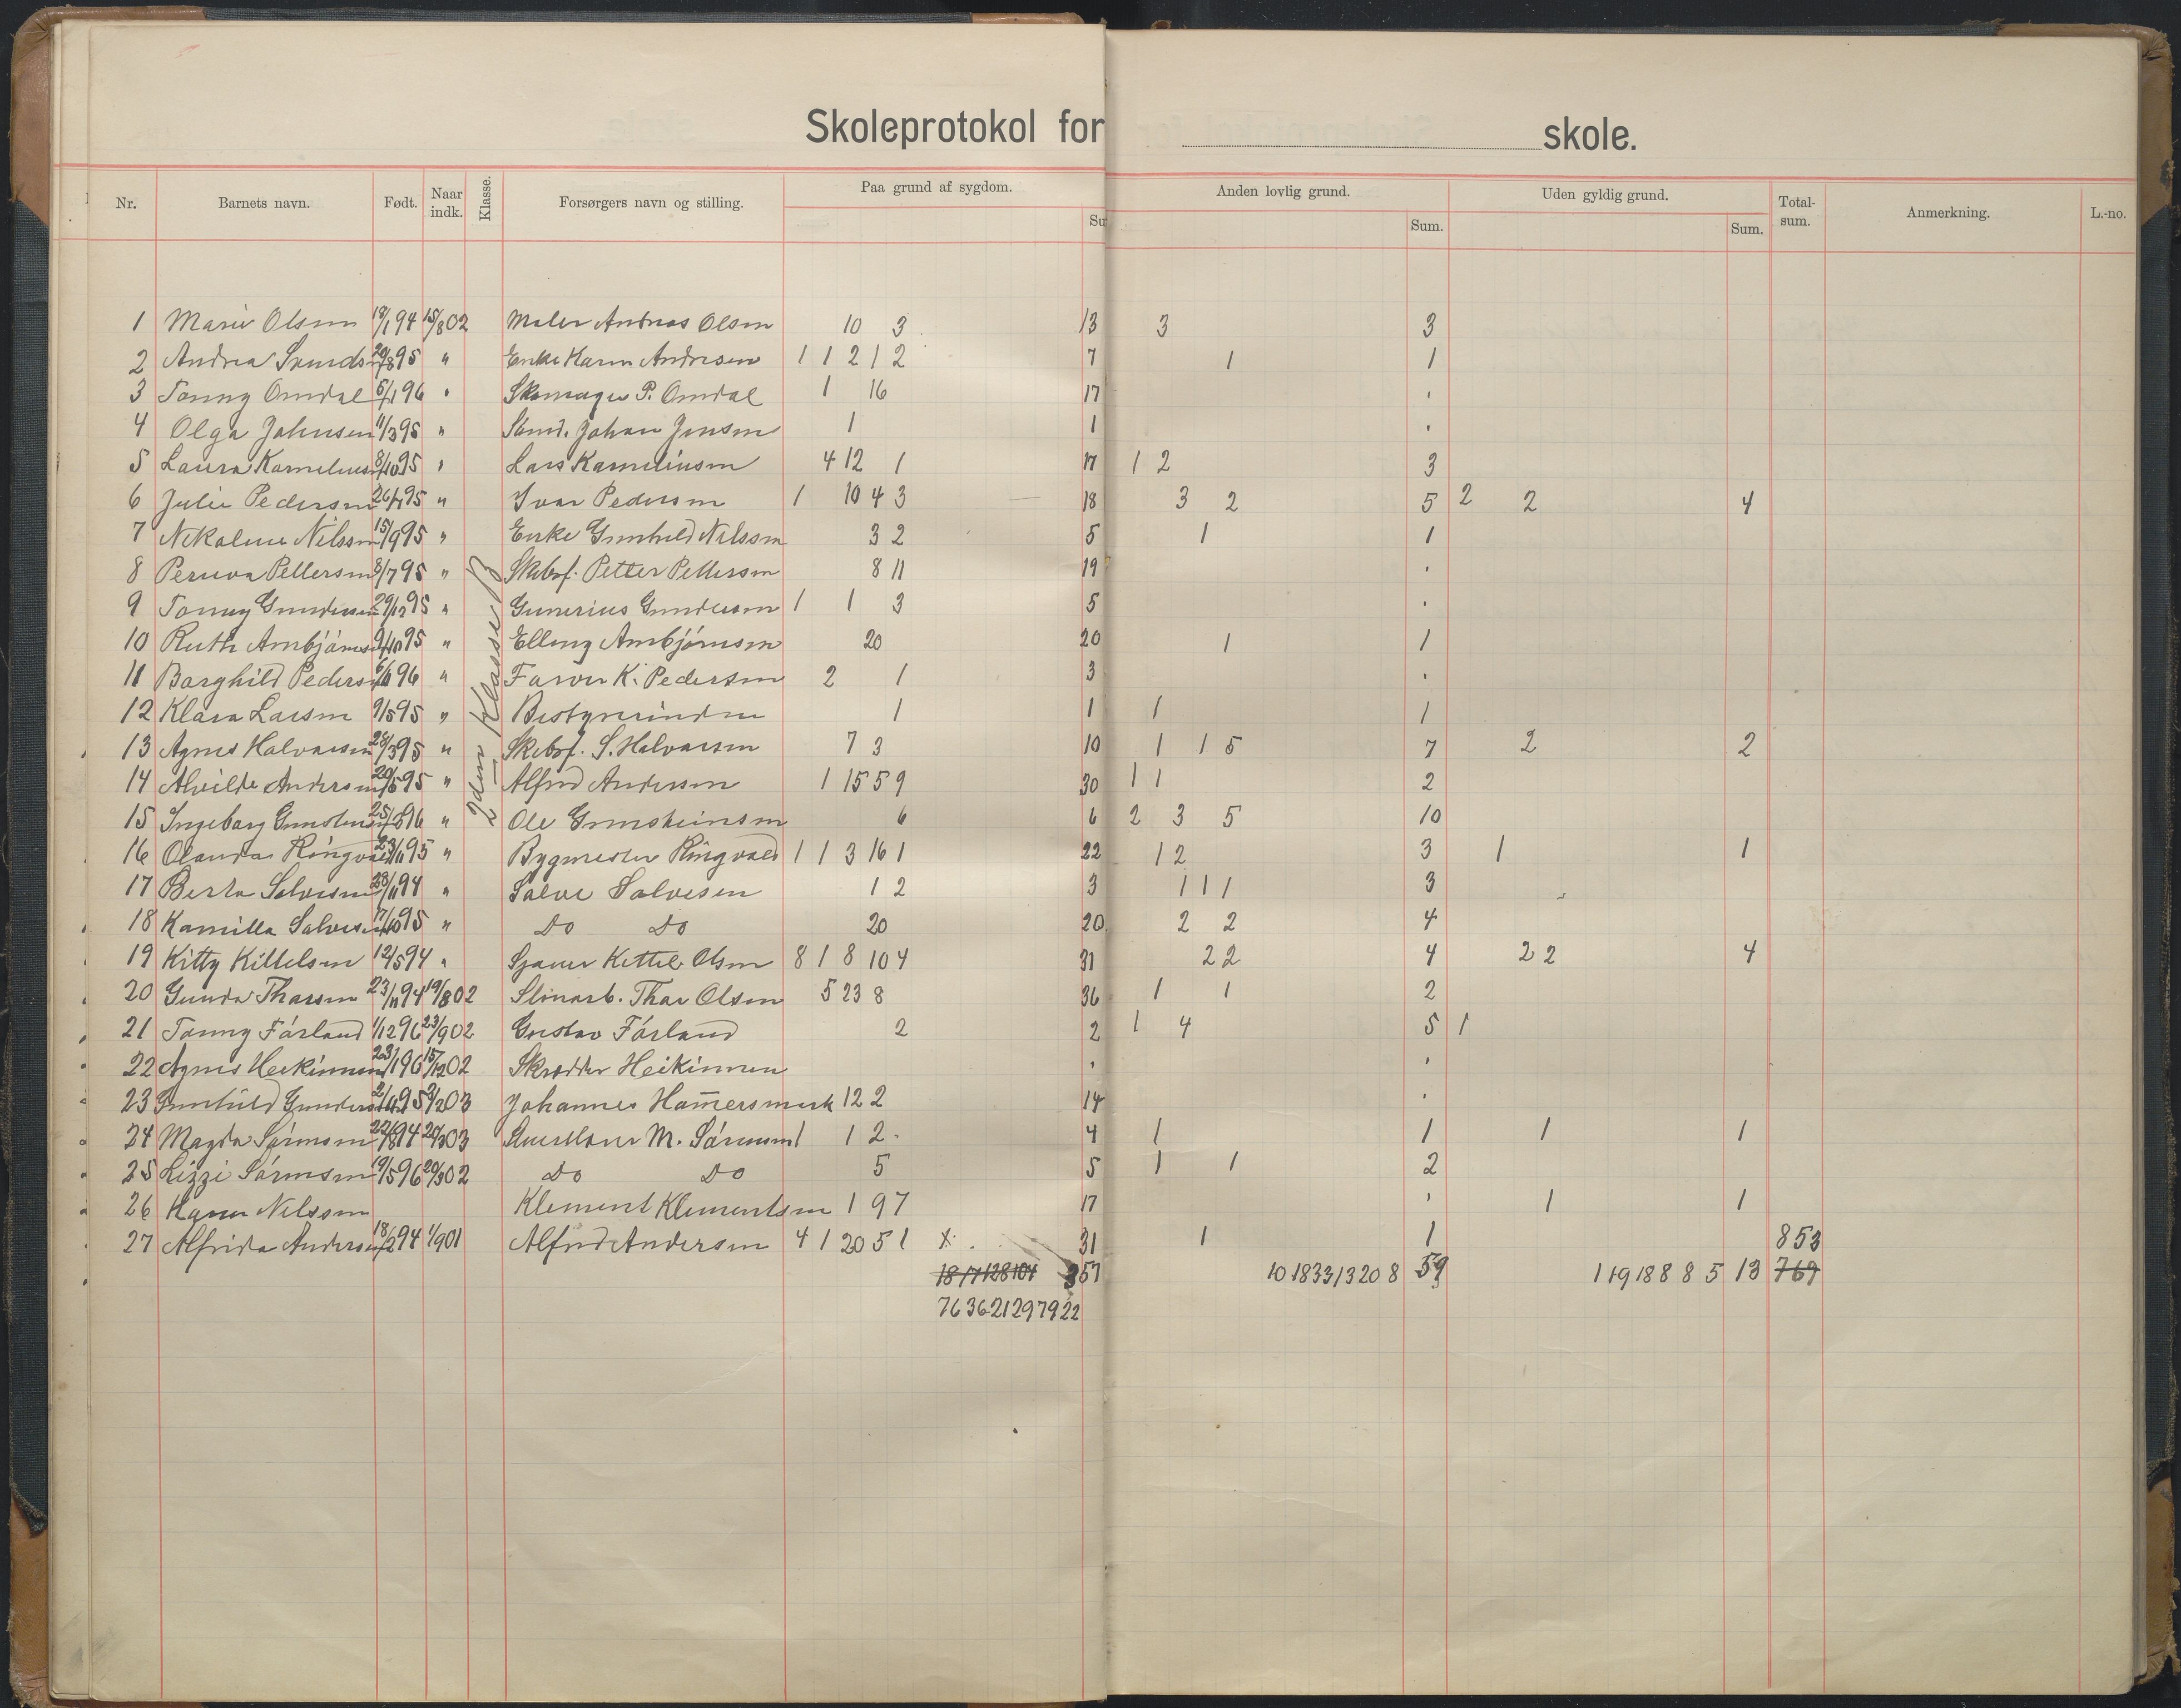 Skoleprotokol for skole.
Nr. Barnets navn. Født. Naar indk. Klasse. Forsørgers navn og stilling. Paa grund af sygdom. Su Anden lovlig grund. Sum. Uden gyldig grund. Sum. Total-sum. Anmerkning. L.-no.
2den Klasse B
1 Marie Olsen 18/1 94 15/8 02 Maler Andreas Olsen 10 3 13 3 3
2 Andrea 95 " Enke Karen Andresen 1 1 2 1 2 7 1 1
3 Tonny Omdal 5/1 96 " Skomager P. Omdal 1 16 17 "
4 Olga Johnsen 11/3 95 " Johan Jensen 1 1 "
5 Laura Kornelius 8/10 95 " Lars Korneliusen 4 12 1 17 1 2 3
6 Julie Pedersen 95 " Ivar Pedersen 1 10 4 3 18 3 2 5 2 2 4
7 Nikoline Nilsson 15/9 95 " Enke Gunhild Nilsson 3 2 5 1 1
8 Petterson 3/7 95 " Skibsf. Petter Petterson 8 11 19 "
9 Tonny Gundersen 29/12 95 " Gunerius Gundersen 1 1 3 5 "
10 Ruth Arnbjörnsen 9/10 95 " Elling Arnbjörnsen 20 20 1 1
11 Borghild Pedersen 96 " Farver K. Pedersen 2 1 3 "
12 Klara Larsen 9/5 95 " Bestyrerinden 1 1 1 1
13 Agnes Halvorsen 28/3 95 " Skibsf. S. Halvorsen 7 3 10 1 1 5 7 2 2
14 Alvilde Andersen 20/5 95 " Alfred Andersen 1 15 5 9 30 1 1 2
15 Ingeborg Gunsteinsen 96 " Ole Gunsteinsen 6 6 2 3 5 10
16 Olanda Ringvold 95 " Bygmester Ringvold 1 1 3 16 1 22 1 2 3 1 1
17 Berta Salvesen 28/11 94 " Salve Salvesen 1 2 3 1 1 1 3
18 Kamilla Salvesen 17/10 95 " Do Do 20 20 2 2 4
19 Kitty Kittelsen 12/5 94 " Sjauer Kittel Olsen 8 1 8 10 4 31 2 2 4 2 2 4
20 Gunda Tharsen 23/11 94 19/8 02 Thor Olsen 5 23 8 36 1 1 2
21 Tonny Fårland 1/12 96 23/9 02 Gustav Fårland 2 2 1 4 5 1
22 Agnes Heikinnen 23/1 96 15/12 02 Skrædder Heikinnen " "
23 Gunhild 95 03 Johannes Hamersmerk 12 2 14 "
24 Magda Sörensen 94 03 M. Sörensen 1 1 2 4 1 1 1 1
25 Lizzi Sörensen 19/5 96 02 Do Do 5 5 1 1 2
26 Karen Nilsson Klement Klementsen 1 9 7 17 " 1 1
27 Alfrida Andersen 18/2 94 1/9 01 Alfred Andersen 4 1 20 5 1 x 31 1 1 853
18 17 128 104 357 10 18 33 13 20 8 59 1 19 18 8 8 5 13 769
76 36 21 29 79 22